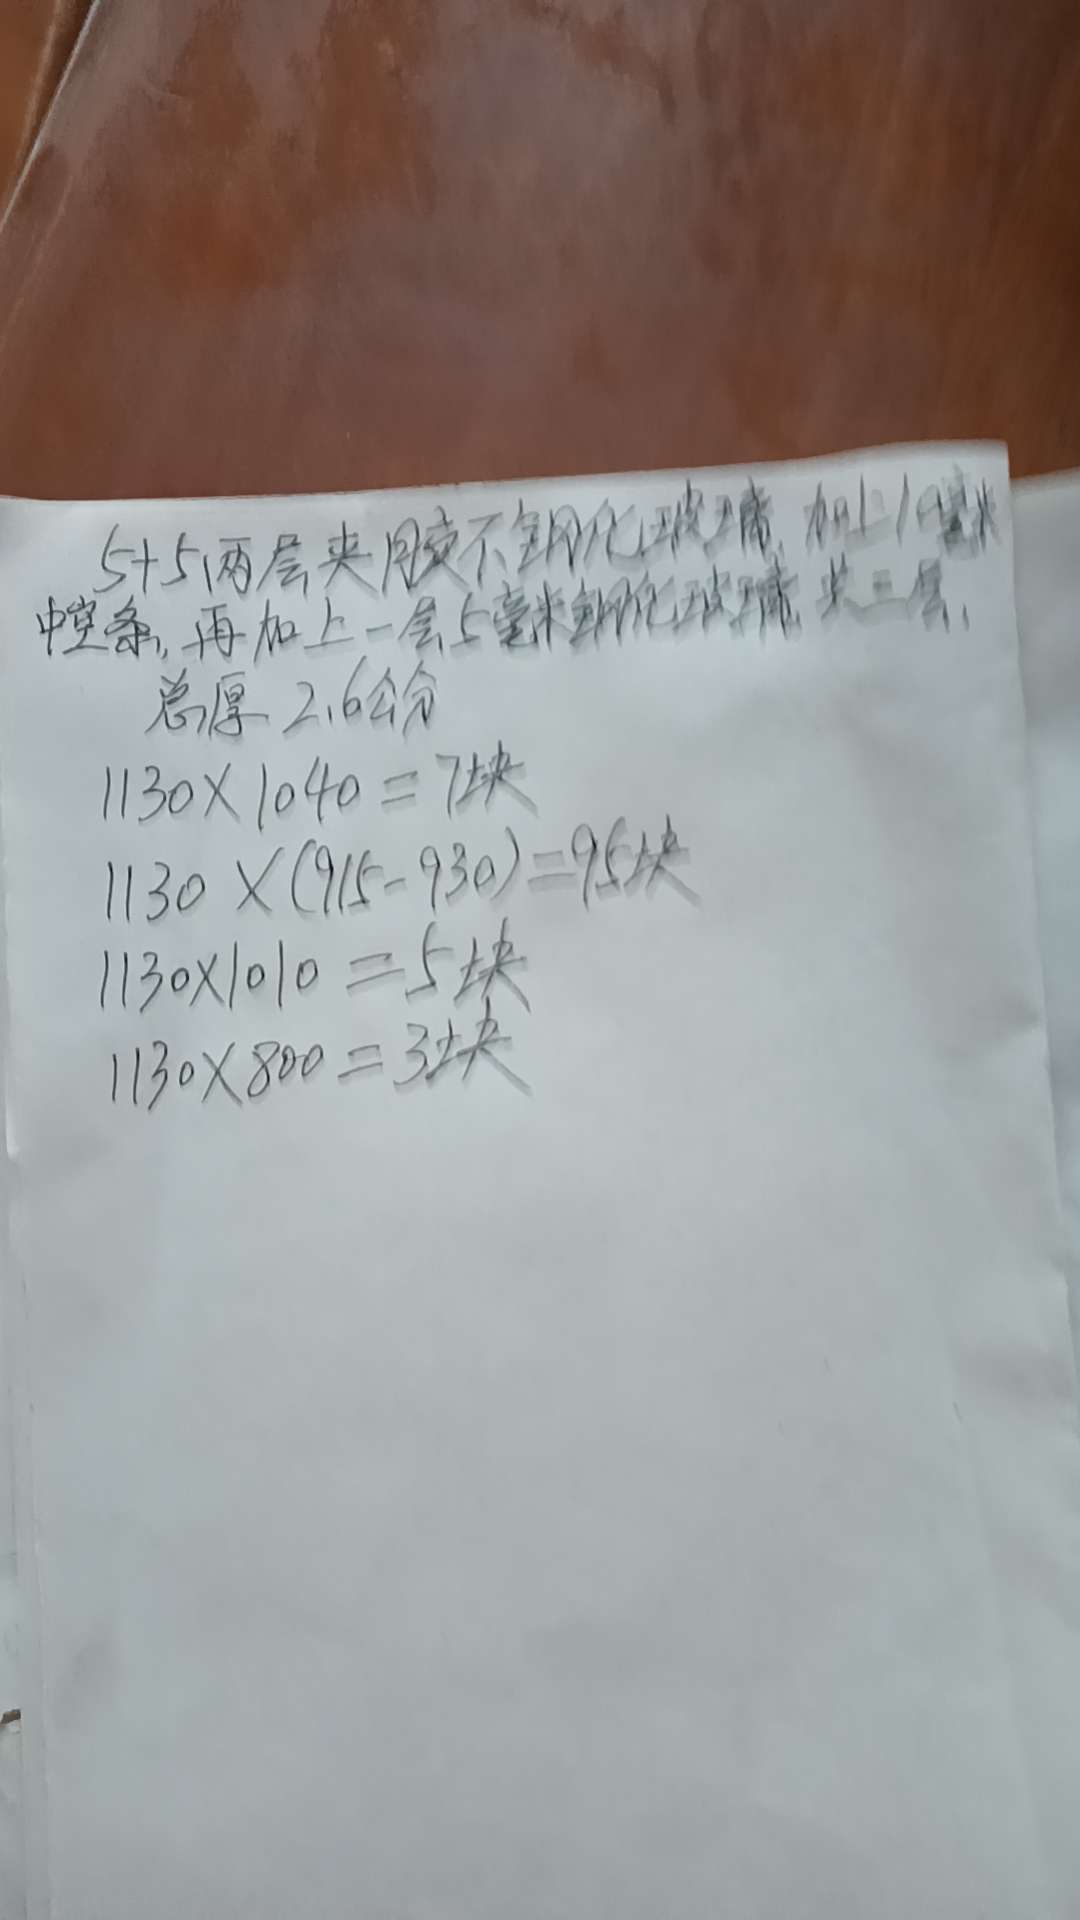 5+5两层夹胶不钢化玻璃,加上10毫米
中空条,再加上一层5毫米钢化玻璃,共三层,
总厚2.6公分
1130×1040=7块
1130×(915-930)=95块
1130×1010=5块
1130×800=3块